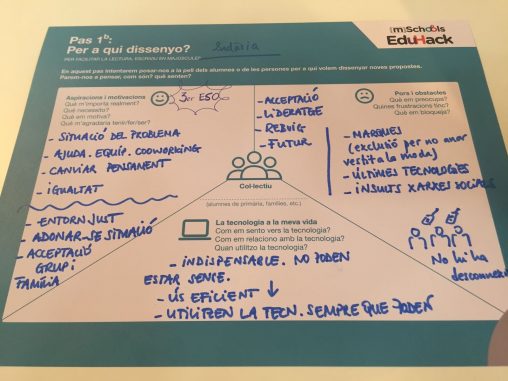 Pas 1b:
Per a qui dissenyo?
PER FACILITAR LA LECTURA, ESCRIVIU EN MAJÚSCULES
(m)Schools
EduHack
En aquest pas intentarem posar-nos a la pell dels alumnes o de les persones per a qui volem dissenyar noves propostes.
Parem-nos a pensar, com són? què senten?
Aspiracions i motivacions
Què m'importa realment?
Què necessito?
Què em motiva?
Què m'agradaria tenir/fer/ser?
3er ESO
- SITUACIÓ DEL PROBLEMA
- AJUDA. EQUIP. COOWORKING
- CANVIAR PENSAMENT
- IGUALTAT
- ENTORN JUST
- ADONAR-SE SITUACIÓ
- ACCEPTACIÓ
GRUP i
FAMÍLIA
- ACCEPTACIÓ
- LIDERATGE
- REBUIG
- FUTUR
Col·lectiu
(alumnes de primària, famílies, etc.)
Pors i obstacles
Què em preocupa?
Quines frustracions tinc?
Què em bloqueja?
- MARQUES
(exclusió per no anar
vestit a la moda)
- ÚLTIMES TECNOLOGIES
- INSULTS XARXES SOCIALS
No hi ha
La tecnologia a la meva vida
Com em sento vers la tecnologia?
Com em relaciono amb la tecnologia?
Quan utilitzo la tecnologia?
- INDISPENSABLE. NO PODEN
ESTAR SENSE.
- ÚS EFICIENT ↓
- UTILITZEN LA TECN. SEMPRE QUE PODEN